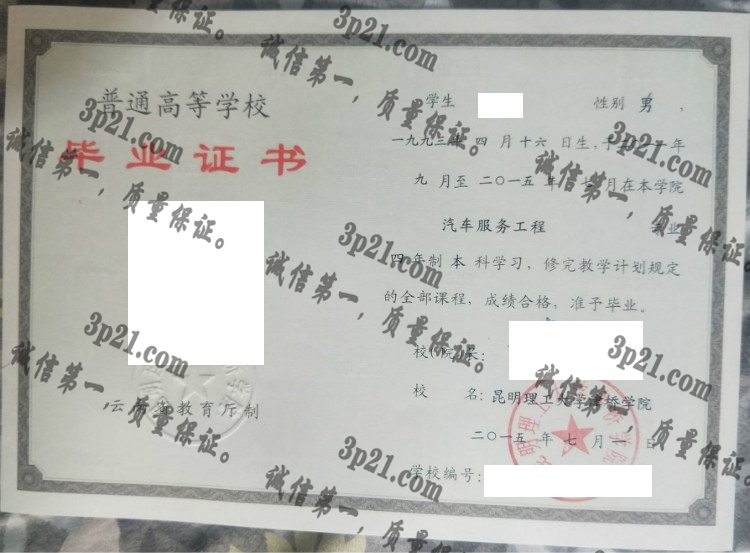 普通高等学校
毕业证书
云南省教育厅制
学生 性别 男 ，
一九九三年 四 月十六 日生，于二〇一一年
九 月至 二〇一五 年 七 月在本学院
汽车服务工程 专业
四 年制 本 科学习，修完教学计划规定
的全部课程，成绩合格，准予毕业。
校(院)长：
校 名：昆明理工大学津桥学院
二〇一五 年 七 月 日
学校编号：
3p21.com
诚信第一，质量保证。
3p21.com
诚信第一，质量保证。
3p21.com
诚信第一，质量保证。
3p21.com
诚信第一，质量保证。
3p21.com
诚信第一，质量保证。
3p21.com
诚信第一，质量保证。
3p21.com
诚信第一，质量保证。
3p21.com
诚信第一，质量保证。